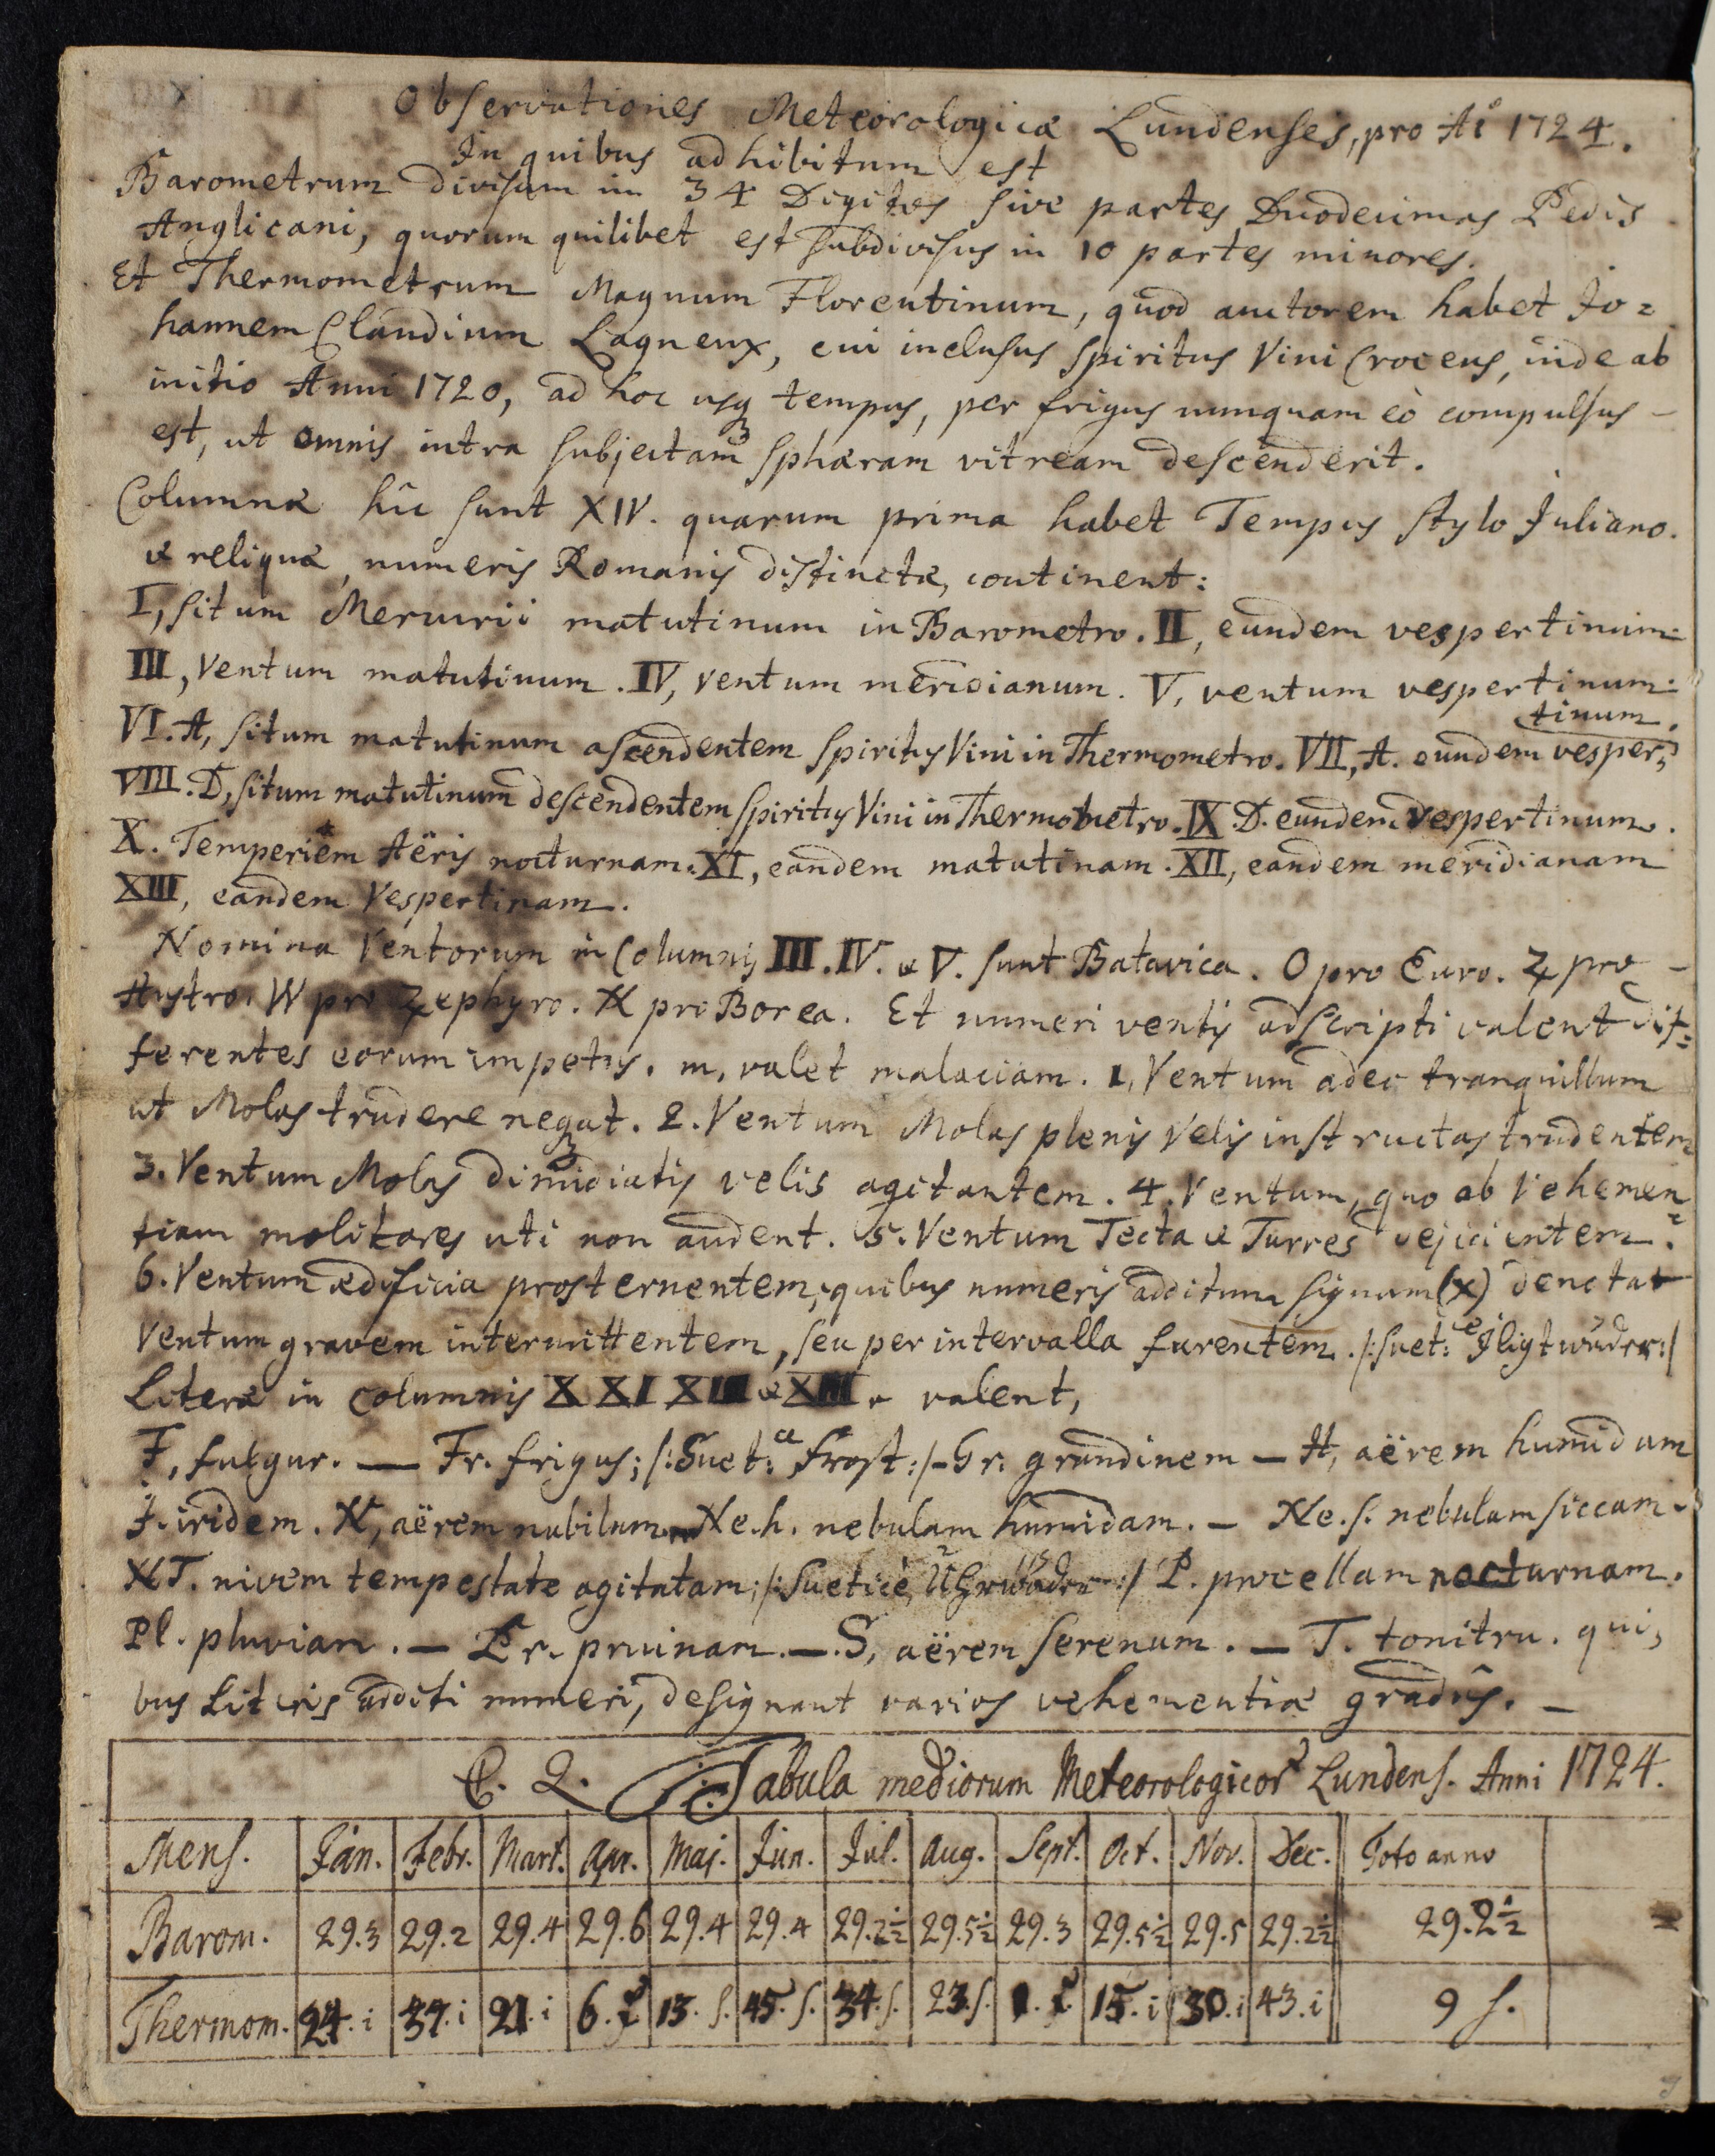 Observationes Meteorologicæ Lundenses, pro Aº 1724.
In quibus adhibitum est
Barometrum divisum in 34 Digitos sive partes Duodecimas Pedis
Anglicani, quorum quilibet est subdivisus in 10 partes minores.
Et Thermometrum Magnum Florentinum, quod auctorem habet Jo=
hannem Claudium Lagneux, cui inclusus spiritus Vini Croceus, inde ab
initio Anni 1720, ad hoc usq tempus, per frigus nunquam eò compulsus –
est, ut omnis intra subjectam sphæram vitream descenderit.
Columnæ hîc sunt XIV. quarum prima habet Tempus stylo Juliano.
& reliquæ, numeris Romanis distinctæ, continent:
I, situm Mercurii matutinum in Barometro. II, eundem vespertinum
III, Ventum matutinum. IV, ventum meridianum. V, ventum vespertinum.
tinum.
VI. A, situm matutinum ascendentem spiritus Vini in Thermometro. VII, A. eundem vesper=
VIII. D, situm matutinum descendentem spiritus Vini in Thermometro. IX. D. eundem vespertinum.
X. Temperiem Aëris nocturnam. XI, eandem matutinam. XII, eandem meridianam
XIII, eandem Vespertinam.
Nomina Ventorum in Columnis III. IV. & V. sunt Batavica. O pro Euro. Z pro –
Austro. W pro Zephyro. N pro Borea. Et numeri ventis adscripti valent dif=
ferentes eorum impetus. m, valet malaciam. 1, Ventum adeo tranquillum
ut Molas trudere negat. 2. Ventum Molas plenis Velis instructas trudentem
3. Ventum Molas dimidiatis velis agitantem. 4. Ventum, quo ab Vehemen=
tiam molitores uti non audent. 5. Ventum Tecta & Turres dejicientem.
6. Ventum ædificia prosternentem, quibus numeris additum signum (x) denotat
Ventum gravem intermittentem, seu per intervalla furentem. /: Suet: Iligtwäder :/
Literæ in columnis X XI XII & XIII valent,
F, fulgur. — Fr. frigus; /: Suet: Frost :/ – Gr. grandinem – H, aërem humidum
J. iridem. N, aërem nubilum – Ne. h. nebulam humidam. – Ne. s. nebulam siccam.
NT. nivem tempestate agitatam; /: Suetice, :/ P. procellam nocturnam.
Pl. pluviam. – Pr. pruinam. – S, aërem serenum. – T. tonitru. qui=
bus Literis additi numeri, designant varios vehementiæ gradûs. –
C. Q. Tabula mediorum Meteorologicor Lundens. Anni 1724.
Mens. Jan. Febr. Mart. Apr. Maj. Jun. Jul. Aug. Sept. Oct. Nov. Dec. Toto anno
Barom. 29.3 29.2 29.4 29.6 29.4 29.4 29.2½ 29.5½ 29.3 29.5½ 29.5 29.2½ 29.2½
Thermom. 24. i 37. i 21. i 6. 13. s. 45. s. 34. s. 23. s. 1. 15. i 30. i 43. i 9 s.